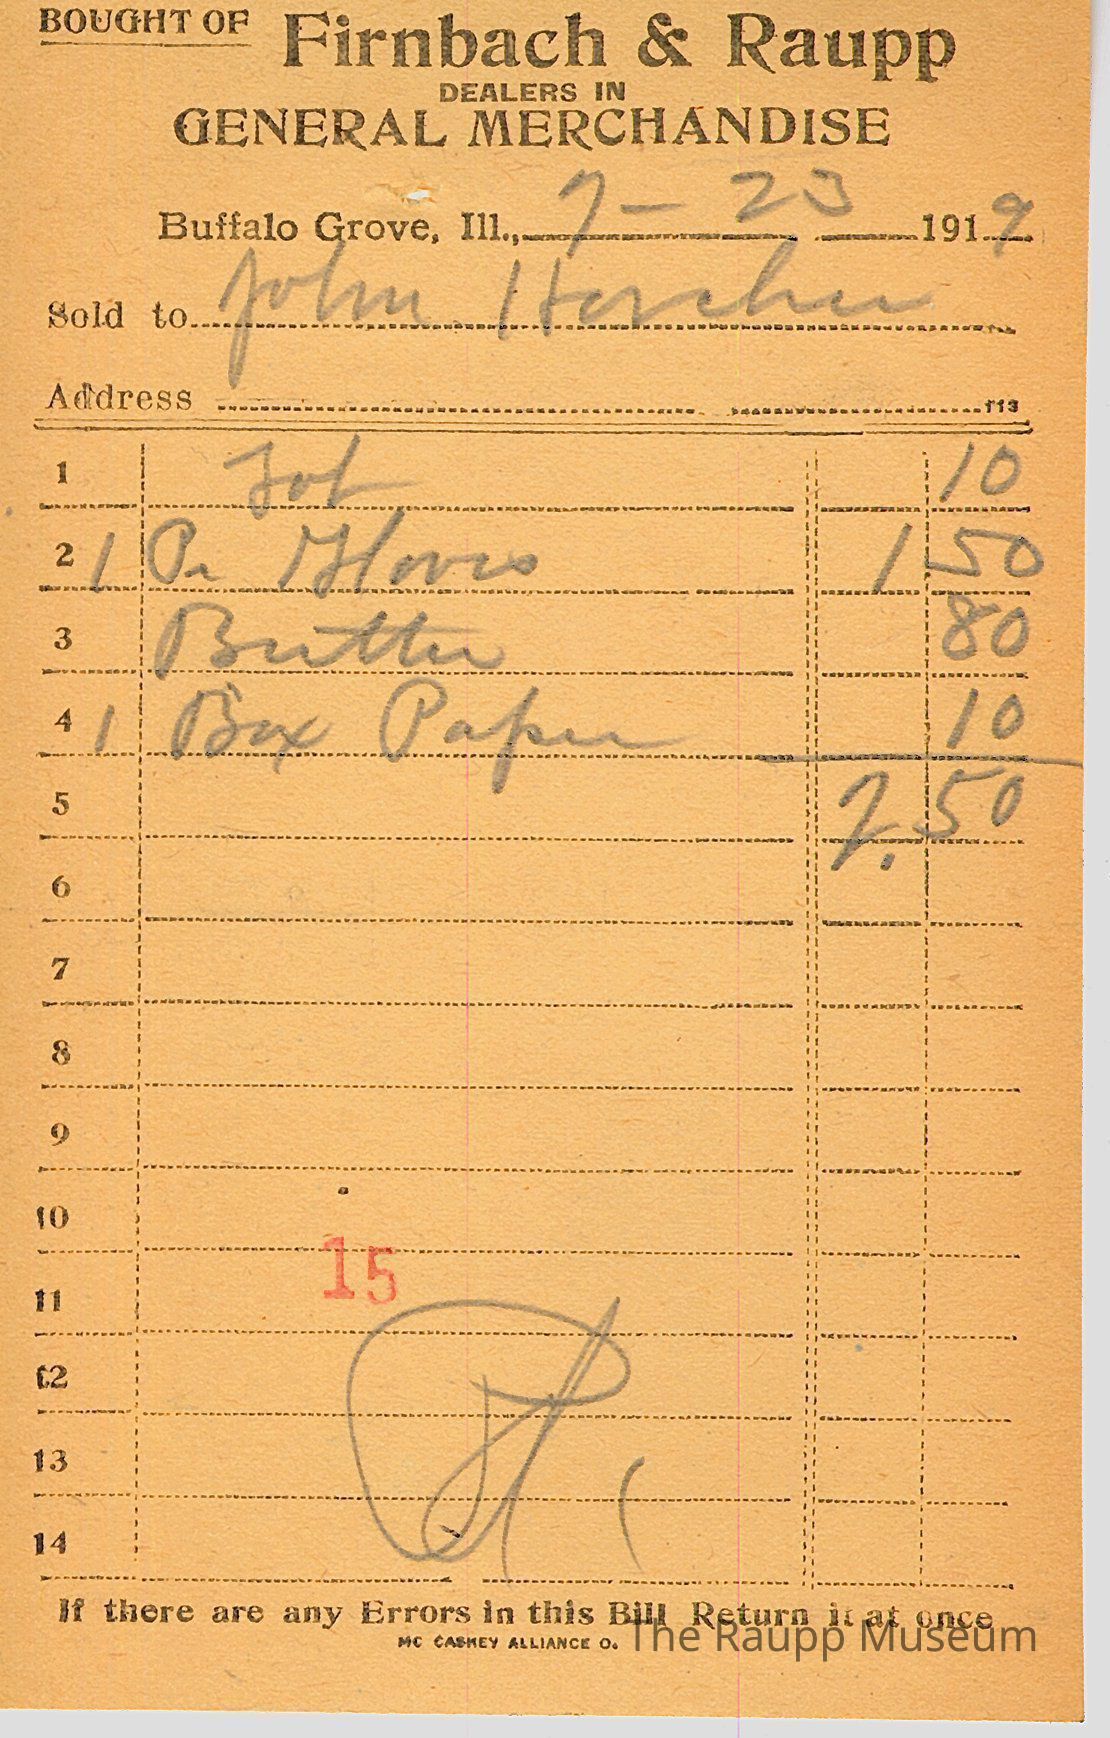 BOUGHT OF Firnbach & Raupp
DEALERS IN
GENERAL MERCHANDISE
Buffalo Grove, Ill., 7-23 1919
Sold to John Horcher
Address
113
1 10
2 1 Pr Gloves 1 50
3 Butter 80
4 1 Box Paper 10
5 2.50
6
7
8
9
10
15
11
12
13
14
If there are any Errors in this Bill Return it at once
MC CASKEY ALLIANCE O.
The Raupp Museum